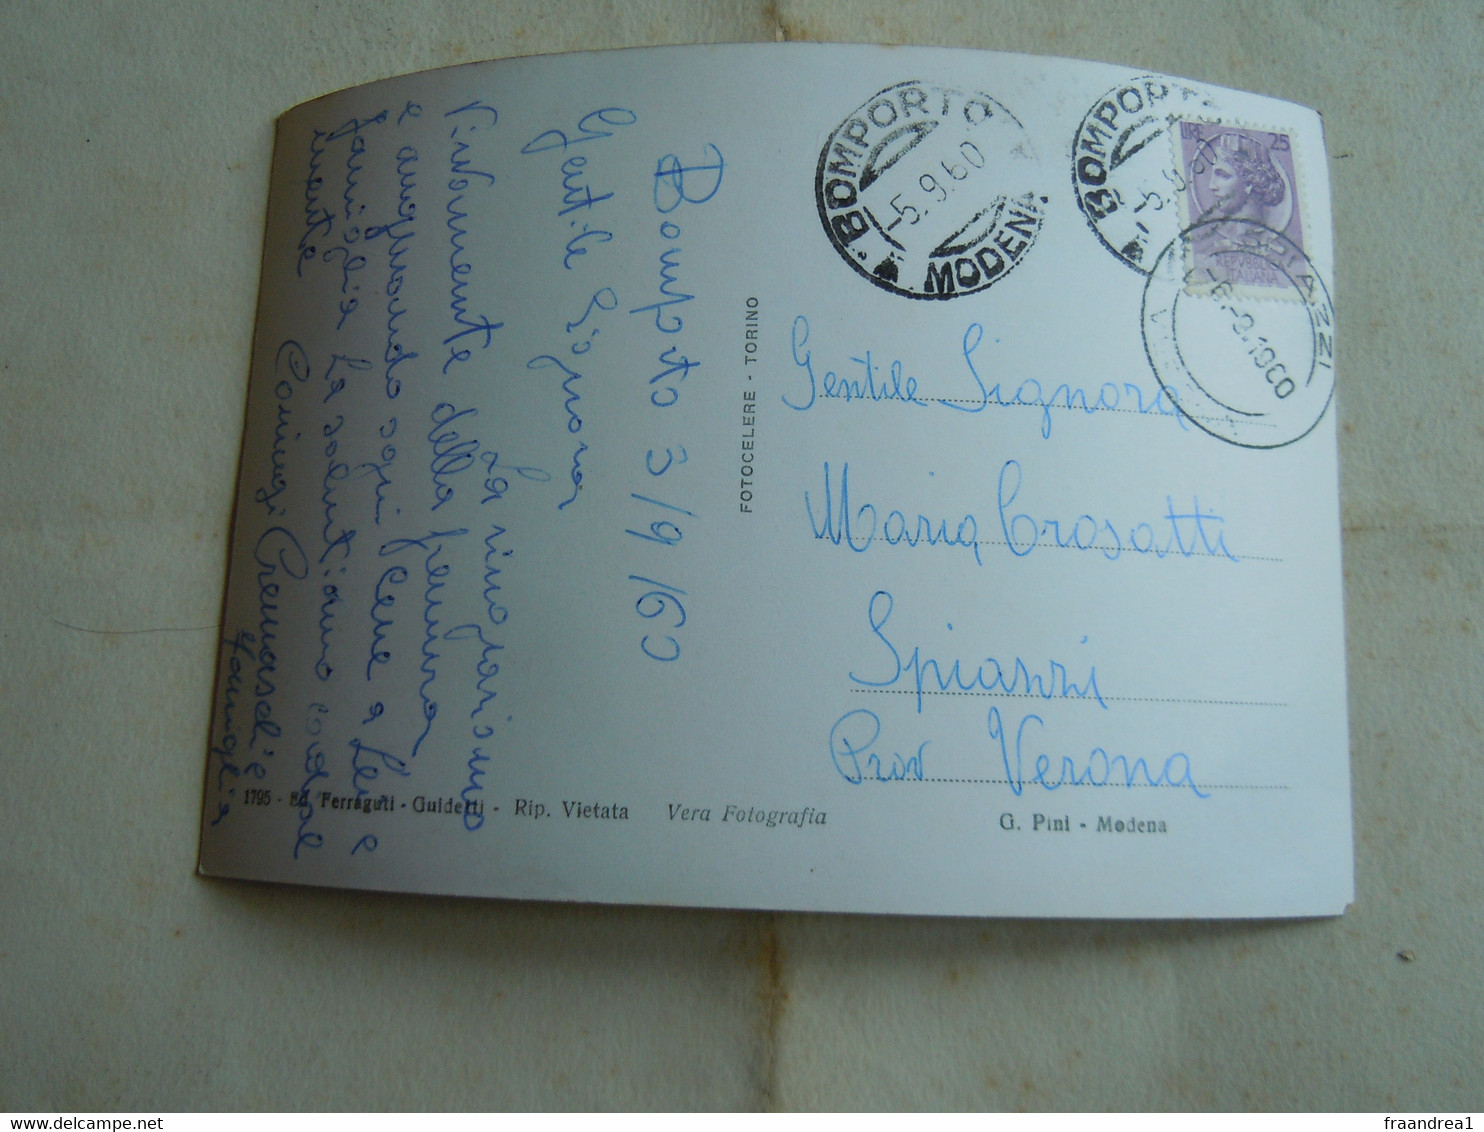 Bomporto 3/9/60
Gentile Signora
La ringraziamo
Vivamente della premura
e augurando ogni bene a Lei e
famiglia La salutiamo cordial
mente
Coniugi Cremaschi e
famiglia
FOTOCELERE - TORINO
BOMPORTO
-5.9.60
MODENA
BOMPORTO
-5.9.60
LIRE 25
REPUBBLICA
ITALIANA
SPIAZZI
-6.-9.1960
Gentile Signora
Maria Crosatti
Spiazzi
Prov Verona
1795 - Ed. Ferraguti - Guidetti - Rip. Vietata Vera Fotografia G. Pini - Modena
delcampe.net
fraandrea1